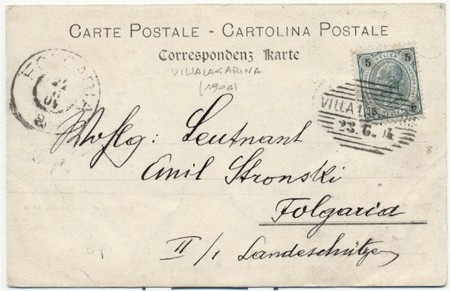 CARTE POSTALE - CARTOLINA POSTALE
Correspondenz Karte
VILLALAGARINA
(1904)
5 5
5 5
VILLA
23.6.04
Wohlg: Leutnant
Emil Stronski
Folgaria
II/1 Landesschützen